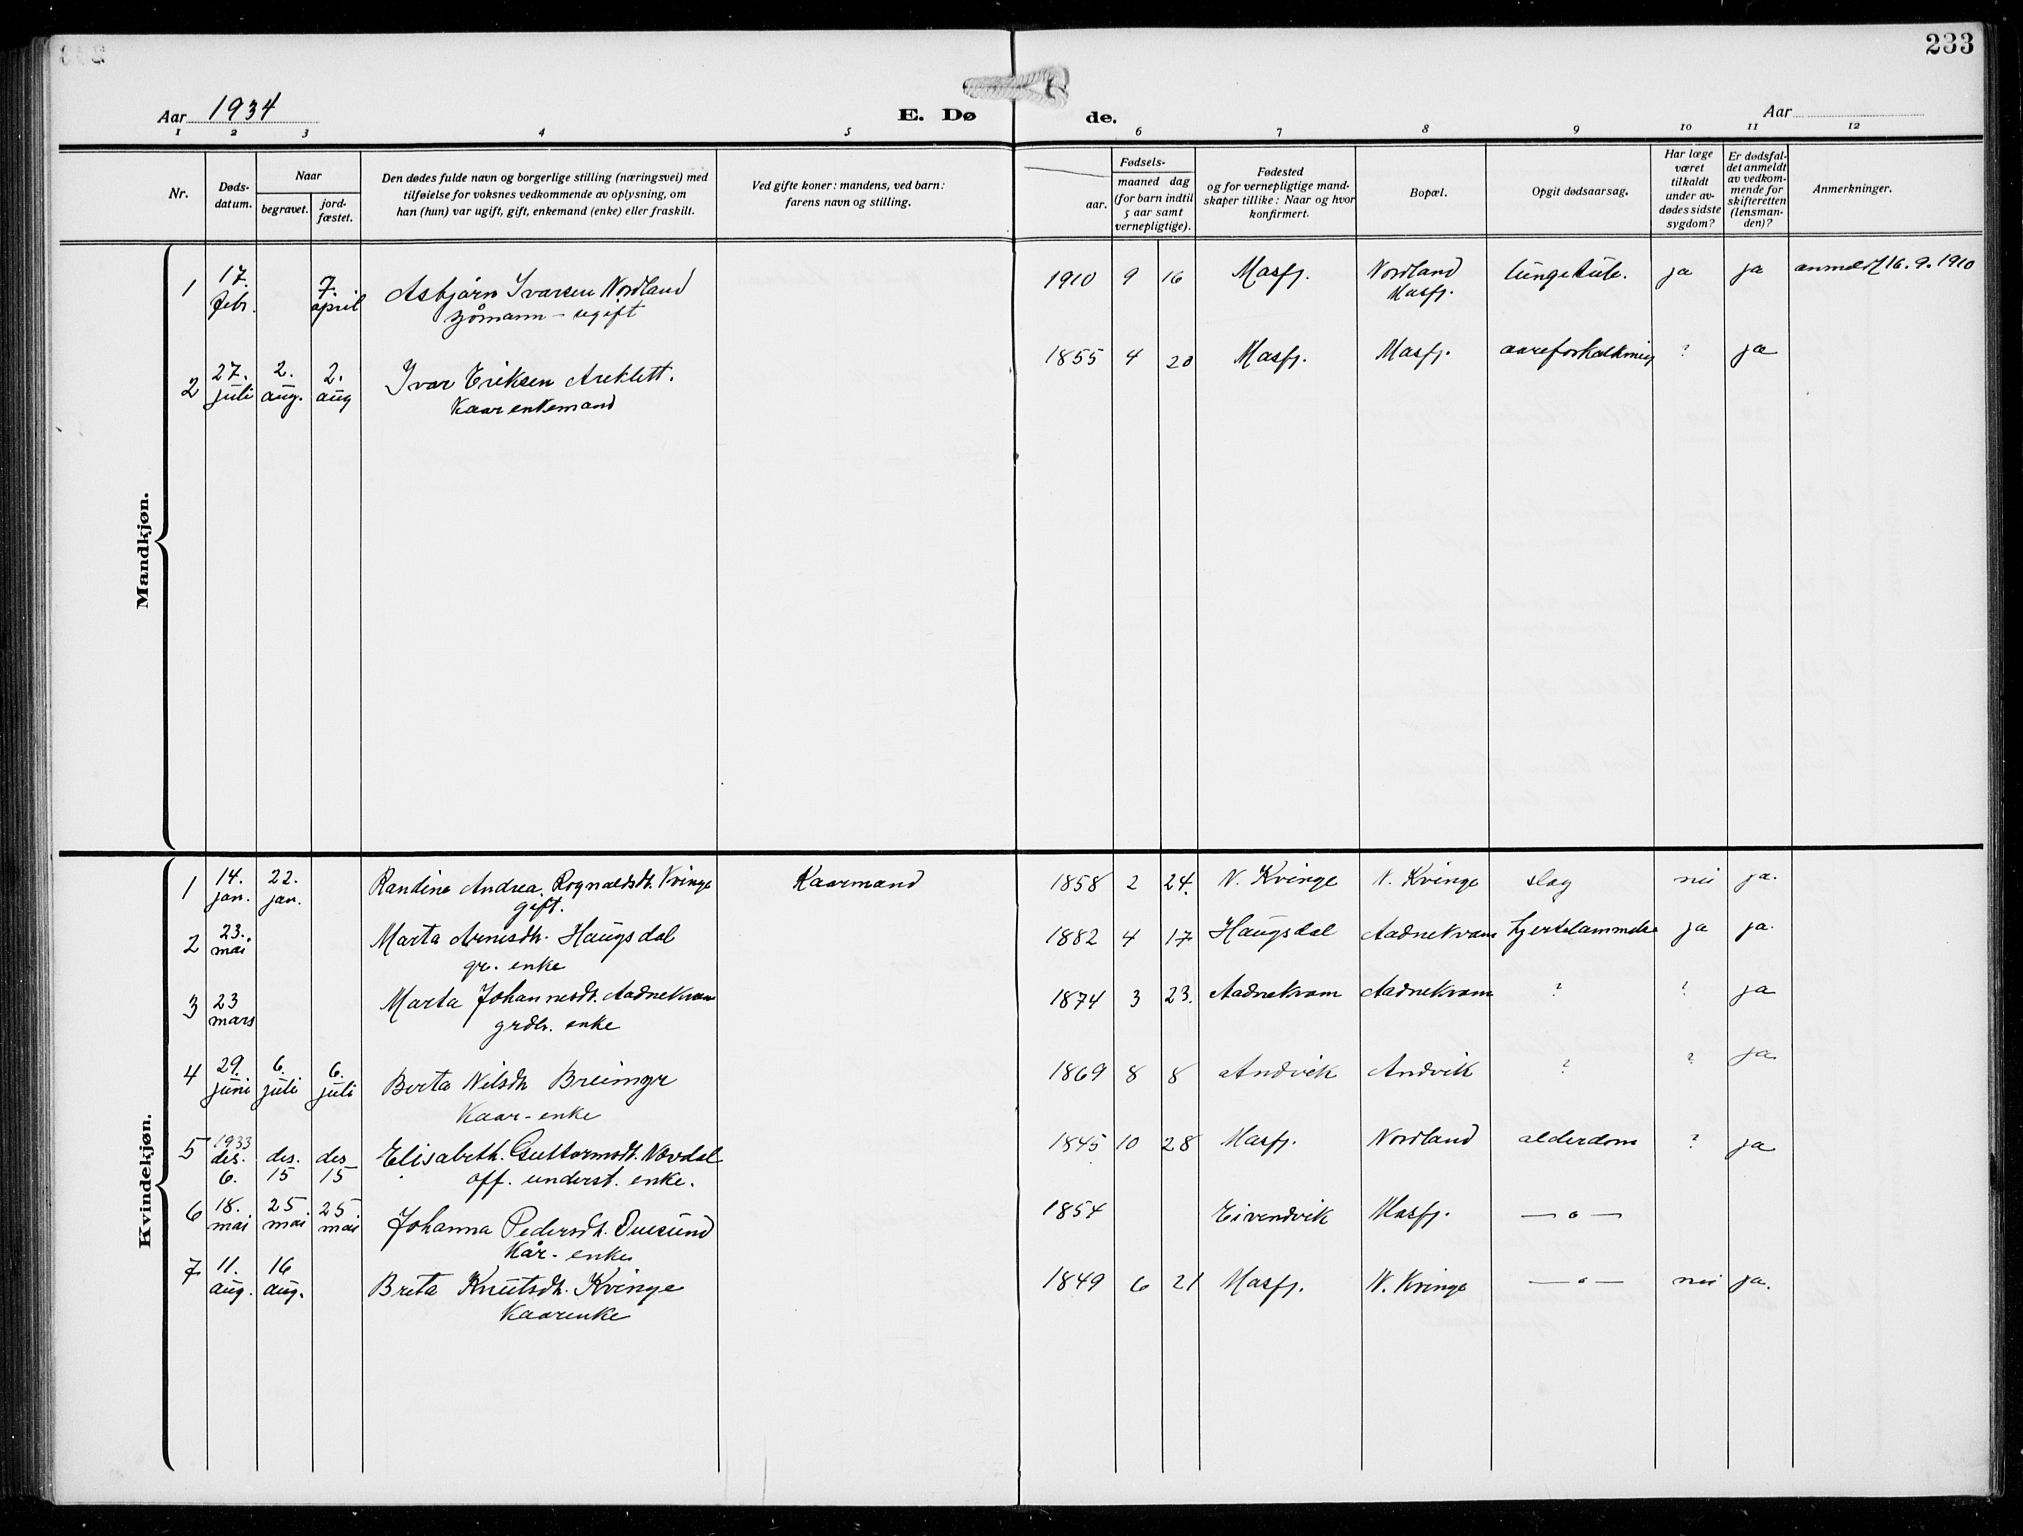 233
Aar 1934
E. Dø de.
Aar
1 2 3 4 5 6 7 8 9 10 11 12
Nr.
Døds-
datum.
Naar
begravet.
jord-
fæstet.
Den dødes fulde navn og borgerlige stilling (næringsvei) med
tilføielse for voksnes vedkommende av oplysning, om
han (hun) var ugift, gift, enkemand (enke) eller fraskilt.
Ved gifte koner: mandens, ved barn:
farens navn og stilling.
Fødsels-
aar.
maaned dag
(for barn indtil
5 aar samt
vernepligtige).
Fødested
og for vernepligtige mand-
skaper tillike: Naar og hvor
konfirmert.
Bopæl.
Opgit dødsaarsag.
Har læge
været
tilkaldt
under av-
dødes sidste
sygdom?
Er dødsfal-
det anmeldt
av vedkom-
mende for
skifteretten
(lensman-
den)?
Anmerkninger.
Mandkjøn.
1 17. febr. 7. april Asbjørn Ivarsen Nordland 1910 9 16 Masfj. Nordland Masfj. ja ja anmeldt 16.9.1910
sjømann - ugift
2 27. juli 2. aug. 2. aug Ivar Eriksen 1855 4 20 Masfj. Masfj. aareforkalkning ? ja
Kaarenkemand
Kvindekjøn.
1 14. jan. 22. jan. Randine Andrea Rognaldsdt. Kvinge Kaarmand 1858 2 24. N. Kvinge N. Kvinge slag nei ja.
gift.
2 23. mai Marta Arnesdt. Haugsdal 1882 4 17 Haugsdal Aadnekvam hjertelammelse ja ja.
gr. enke
3 23 mars Marta Johannesdt. Aadnekvam 1874 3 23. Aadnekvam Aadnekvam ? ? ja
grdb. enke
4 29. juni 6. juli 6. juli Berta Nilsdt 1869 8 8 Andvik Andvik ? ? ja.
Kaar-enke
5 1933 des. 6. des. 15 des 15 Elisabeth Guttormsdt. 1845 10 28 Masfj. Nordland alderdom ? ja
off. underst. enke.
6 18. mai 25 mai 25 mai Johanna Pedersdt. Duesund 1854 Eivendvik Masfj. — o —
Kår- enke
7 11. aug. 16 aug. Brita Knutsdt. Kvinge 1849 6 21 Masfj. N. Kvinge — o — nei ja.
Kaarenke